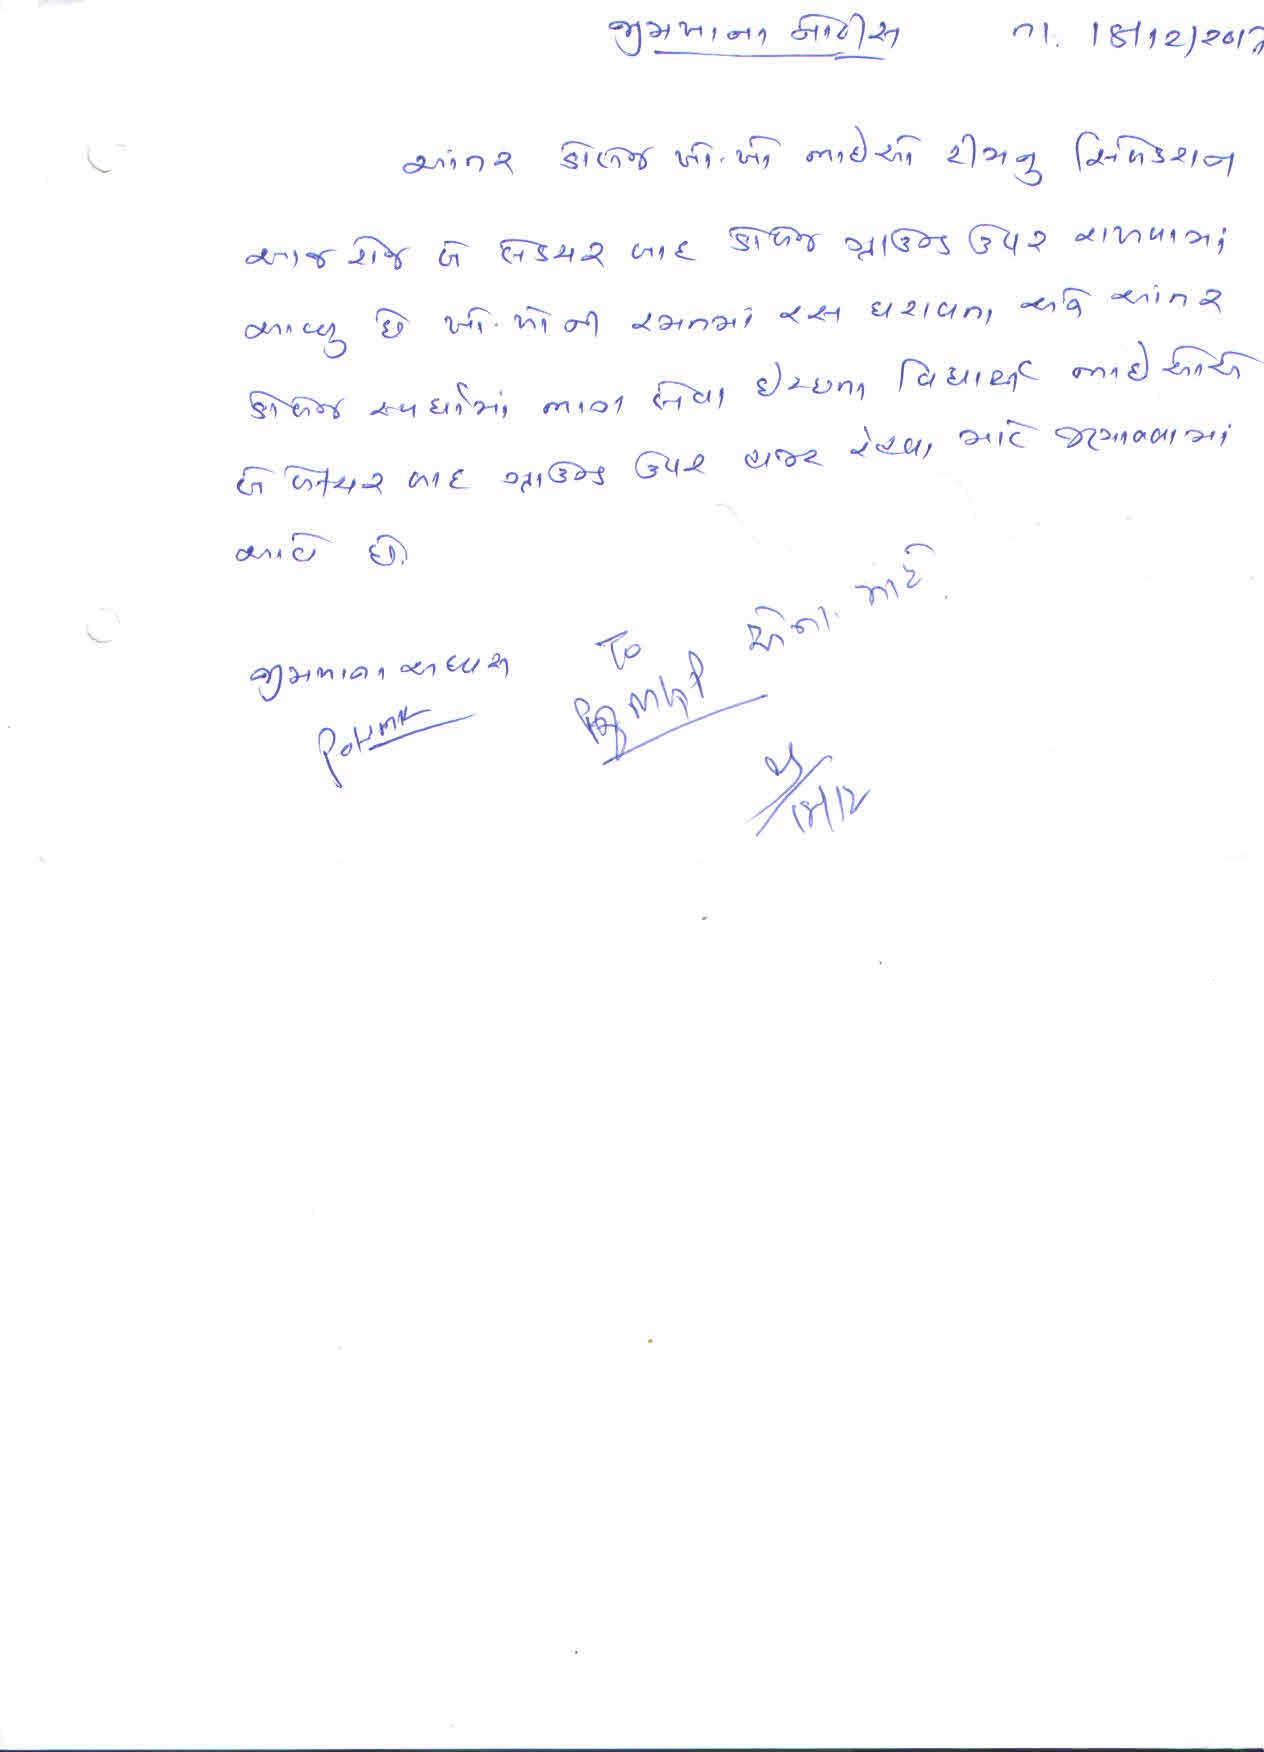 જીમખાના નોટીસ તા. 18/12/2017
આંતર કોલેજ ખો.ખો ભાઈઓ ટીમનુ સિલેકશન
આજ રોજ બે લેકચર બાદ કોલેજ ગ્રાઉન્ડ ઉપર રાખવામાં
આવ્યુ છે ખો.ખો ની રમતમાં રસ ધરાવતા અને આંતર
કોલેજ સ્પર્ધામાં ભાગ લેવા ઈચ્છતા વિદ્યાર્થી ભાઈઓએ
બે લેકચર બાદ ગ્રાઉન્ડ ઉપર હાજર રહેવા માટે જણાવવામાં
આવે છે.
જીમખાના અધ્યક્ષ
To
માટે.
18/12